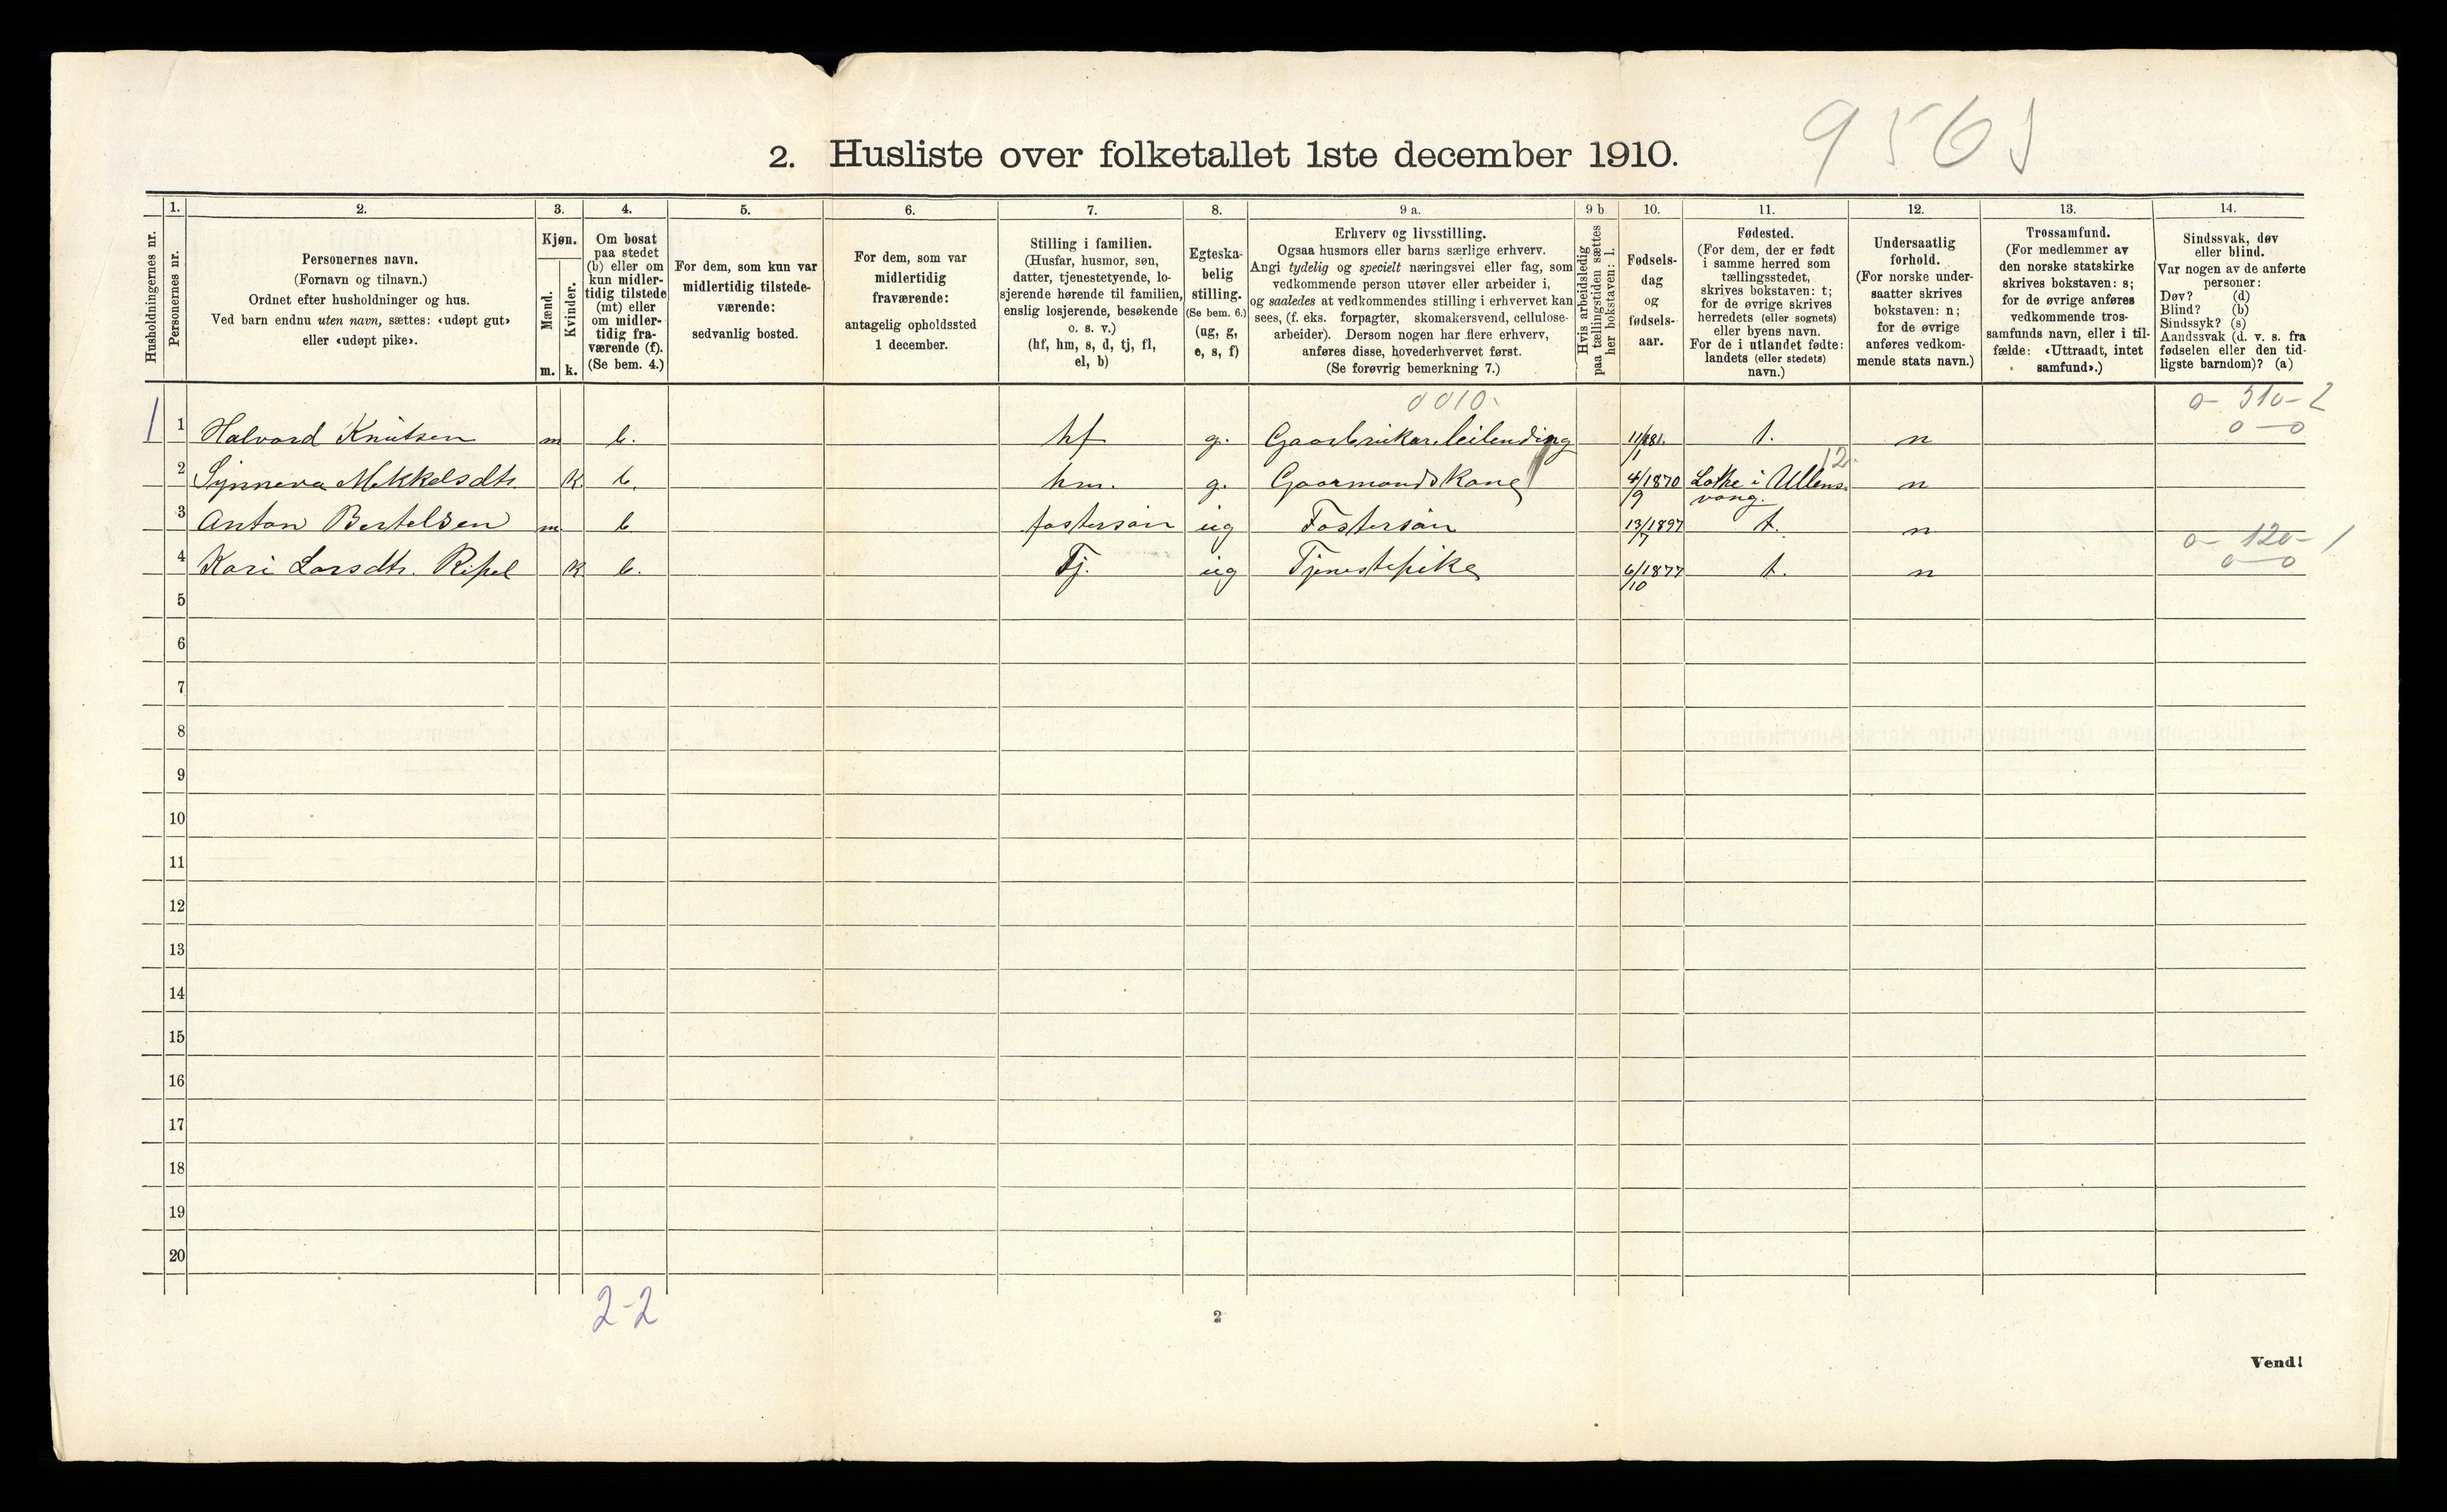 9 5 6 J
2. Husliste over folketallet 1ste december 1910.
Husholdningernes nr.
1.
Personernes nr.
2.
Personernes navn.
(Fornavn og tilnavn.)
Ordnet efter husholdninger og hus.
Ved barn endnu uten navn, sættes: «udøpt gut»
eller «udøpt pike».
3.
Kjøn.
Mænd.
Kvinder.
m. k.
4.
Om bosat
paa stedet
(b) eller om
kun midler-
tidig tilstede
(mt) eller
om midler-
tidig fra-
værende (f).
(Se bem. 4.)
5.
For dem, som kun var
midlertidig tilstede-
værende:
sedvanlig bosted.
6.
For dem, som var
midlertidig
fraværende:
antagelig opholdssted
1 december.
7.
Stilling i familien.
(Husfar, husmor, søn,
datter, tjenestetyende, lo-
sjerende hørende til familien,
enslig losjerende, besøkende
o. s. v.)
(hf, hm, s, d, tj, fl,
el, b)
8.
Egteska-
belig
stilling.
(Se bem. 6.)
(ug, g,
e, s, f)
9 a.
Erhverv og livsstilling.
Ogsaa husmors eller barns særlige erhverv.
Angi tydelig og specielt næringsvei eller fag, som
vedkommende person utøver eller arbeider i,
og saaledes at vedkommendes stilling i erhvervet kan
sees, (f. eks. forpagter, skomakersvend, cellulose-
arbeider). Dersom nogen har flere erhverv,
anføres disse, hovederhvervet først.
(Se forøvrig bemerkning 7.)
9 b
Hvis arbeidsledig
paa tællingstiden sættes
her bokstaven: l.
10.
Fødsels-
dag
og
fødsels-
aar.
11.
Fødested.
(For dem, der er født
i samme herred som
tællingsstedet,
skrives bokstaven: t;
for de øvrige skrives
herredets (eller sognets)
eller byens navn.
For de i utlandet fødte:
landets (eller stedets)
navn.)
12.
Undersaatlig
forhold.
(For norske under-
saatter skrives
bokstaven: n;
for de øvrige
anføres vedkom-
mende stats navn.)
13.
Trossamfund.
(For medlemmer av
den norske statskirke
skrives bokstaven: s;
for de øvrige anføres
vedkommende tros-
samfunds navn, eller i til-
fælde: «Uttraadt, intet
samfund».)
14.
Sindssvak, døv
eller blind.
Var nogen av de anførte
personer:
Døv? (d)
Blind? (b)
Sindssyk? (s)
Aandssvak (d. v. s. fra
fødselen eller den tid-
ligste barndom)? (a)
0010. 0- 310-2
1 1 Halvard Knutsen m b. hf g. Gaarbrukar. leilending 11/1 81. t. n 0-0
12.
2 Synneva Mikkelsdtr. k b. hm. g. Gaarmandskone 4/9 1870 Lothe i Ullens- n
vang.
3 Anton Bertelsen m b fostersøn ug Fostersøn 13/7 1897 t. n
0- 120-1
4 Kari Larsdtr. Ripel k b. Tj. ug Tjenestepike 6/10 1877 t. n 0-0
5
6
7
8
9
10
11
12
13
14
15
16
17
18
19
20
2-2
2
Vend!